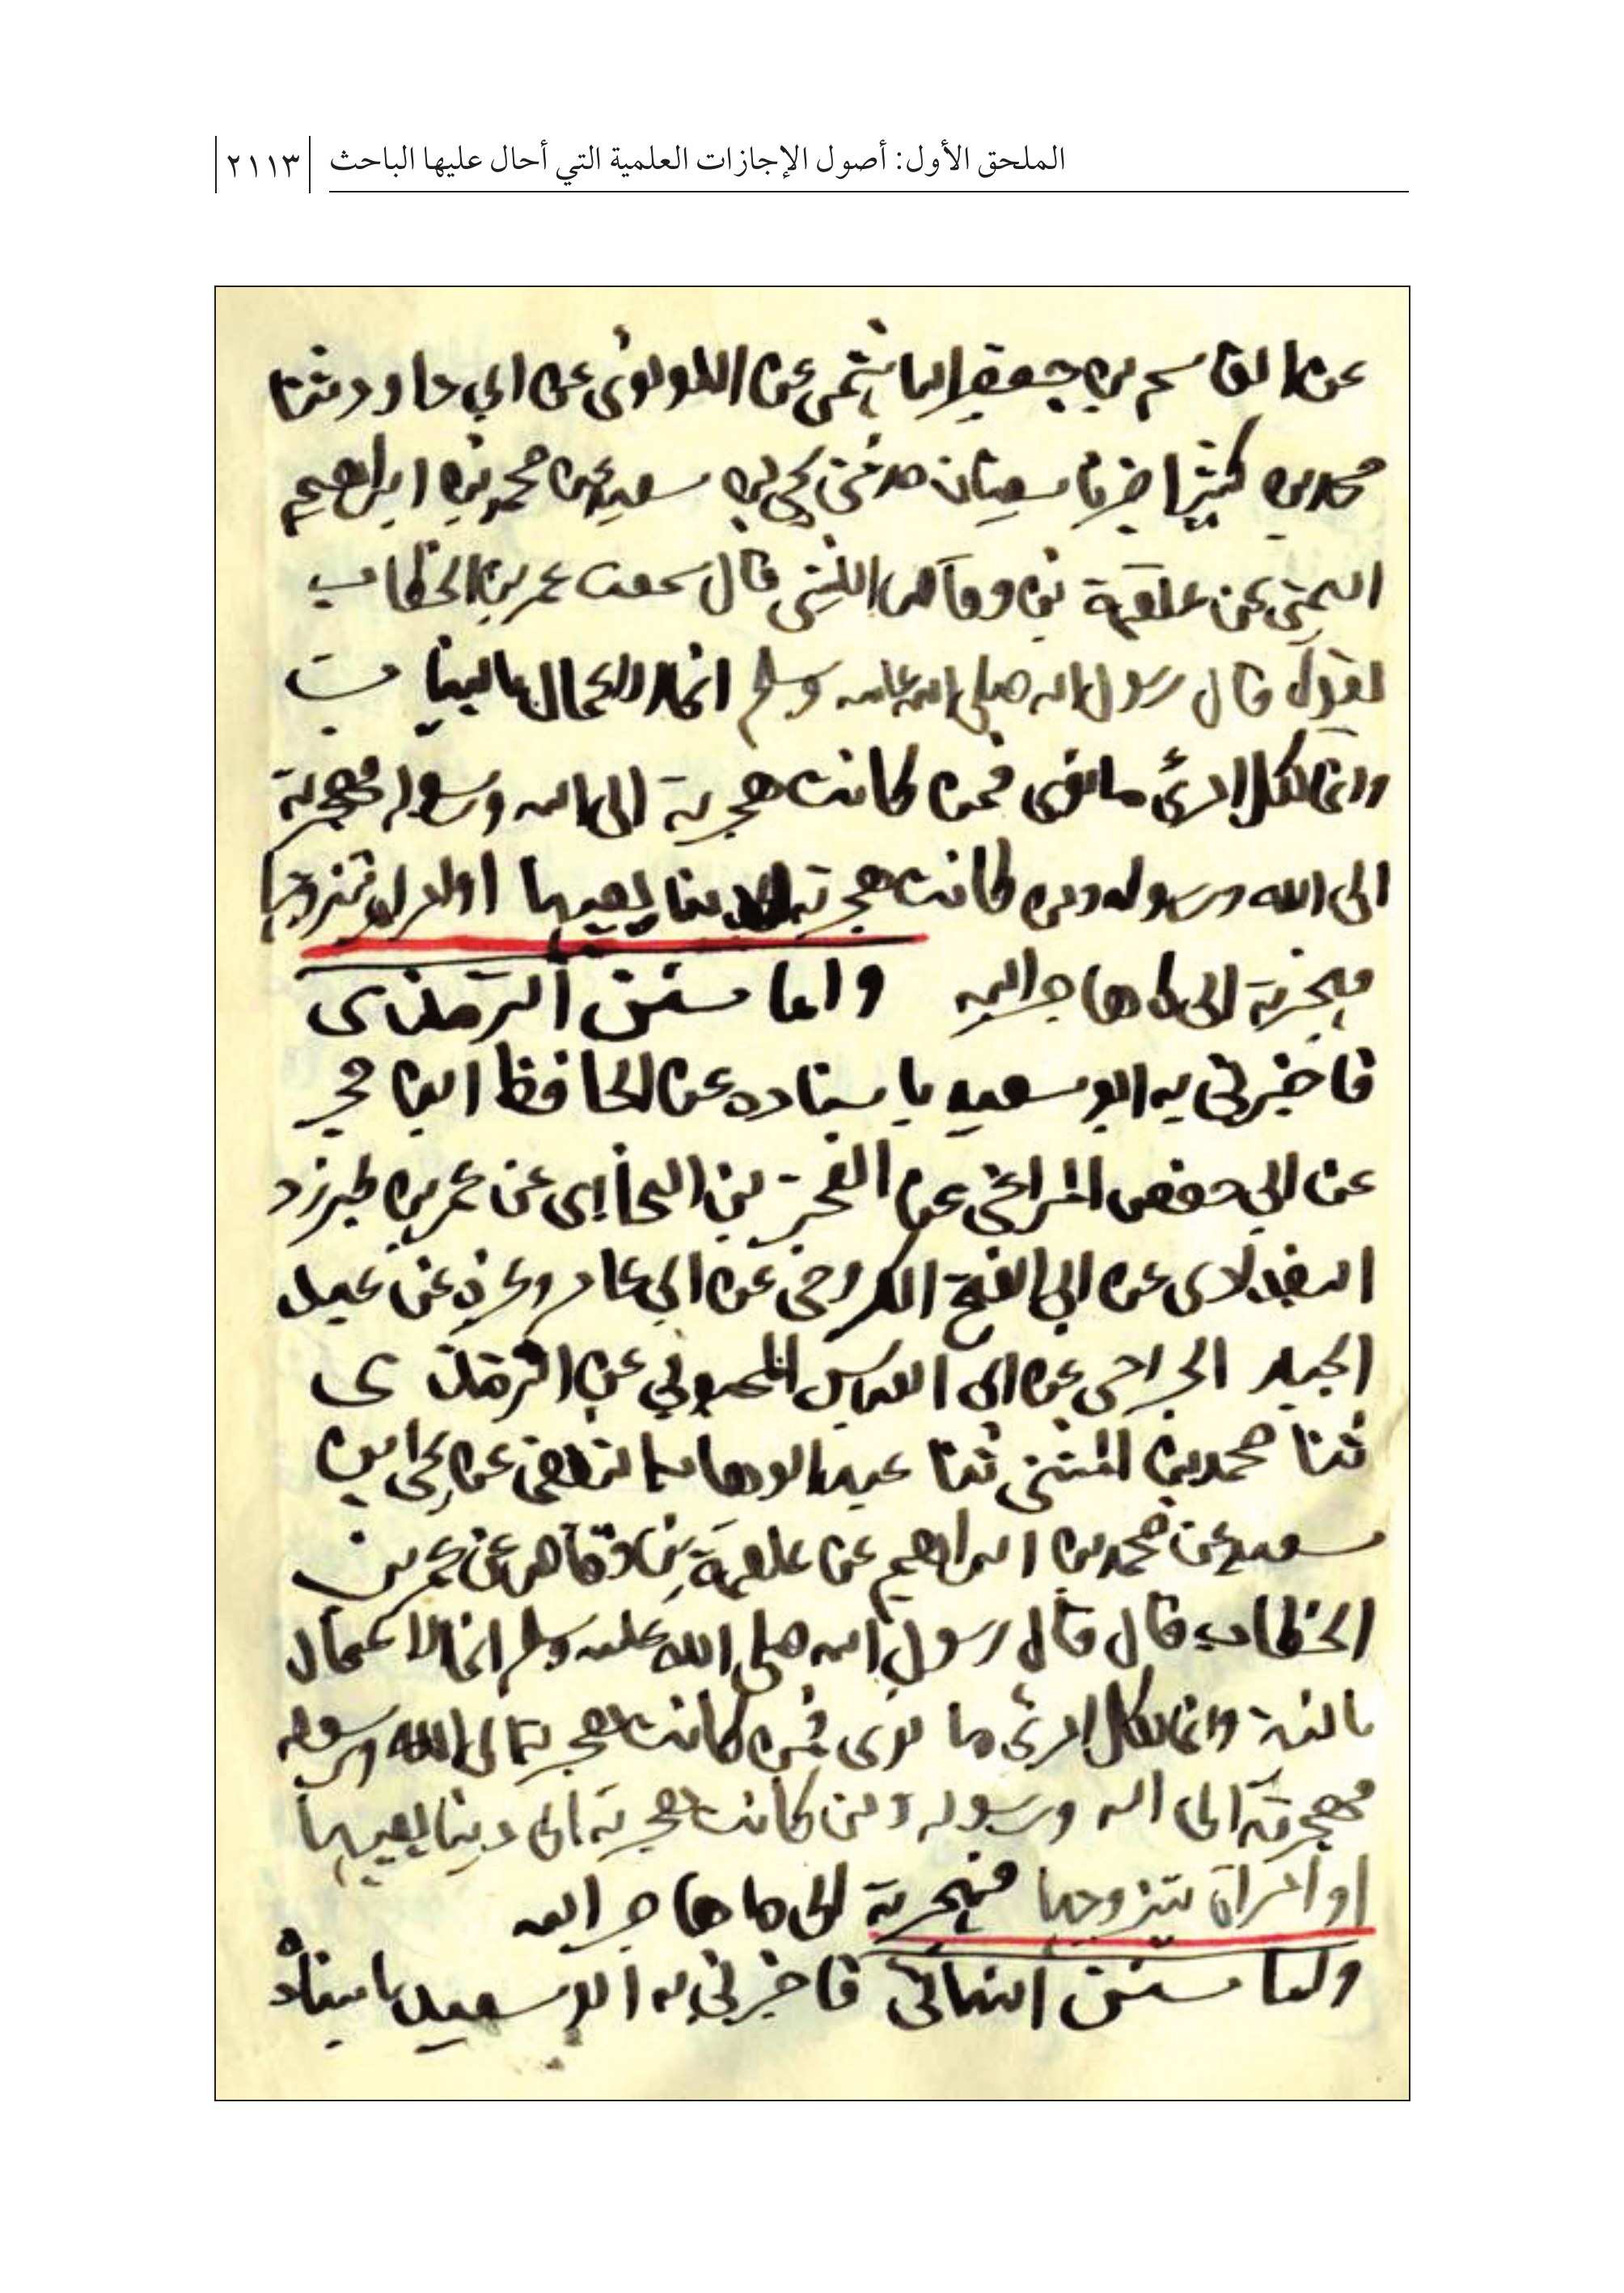 الملحق الأول: أصول الإجازات العلمية التي أحال عليها الباحث ٢١١٣
عن القاسم بن جعفر الهاشمي عن اللولوئى عن ابي داود ثنا
محمد بن كثير اخبرنا سفيان حدثني يحيى بن سعيد عن محمد بن ابراهيم
التيمي عن علقمة بن وقاص الليثي قال سمعت عمر بن الخطاب
يقول قال رسول الله صلى الله عليه وسلم انما الاعمال بالنيات
وانما لكل امرئ ما نوى فمن كانت هجرته الى الله ورسوله فهجرته
الى الله ورسوله ومن كانت هجرته لدينا يصيبها او امراة يتزوجها
فهجرته الى ما هاجر اليه واما سنن الترمذى
فاخبرني به ابو سعيد باسناده عن الحافظ ابن حجر
عن ابي حفص المراغي عن الفخر بن البخاري عن عمر بن طبرزد
البغدادى عن ابي الفتح الكروخي عن ابي عامر وغيره عن عبد
الجبار الجراحي عن ابي العباس المحبوبي عن الترمذى
ثنا محمد بن المثنى ثنا عبد الوهاب الثقفي عن يحيى بن
سعيد عن محمد بن ابراهيم عن علقمة بن وقاص عن عمر بن
الخطاب قال قال رسول الله صلى الله عليه وسلم انما الاعمال
بالنية وانما لكل امرئ ما نوى فمن كانت هجرته الى الله ورسوله
فهجرته الى الله ورسوله ومن كانت هجرته الى دنيا يصيبها
او امراة يتزوجها فهجرته الى ما هاجر اليه
واما سنن النسائي فاخبرني به ابو سعيد باسناده